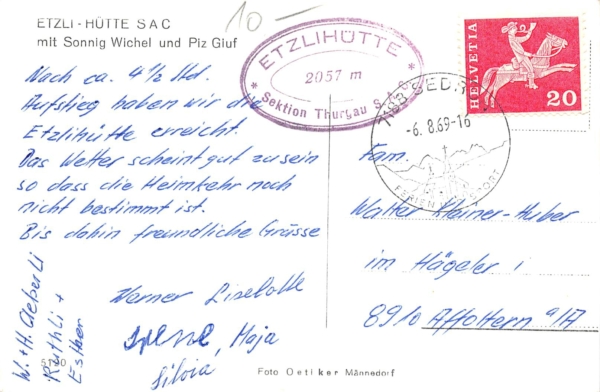 ETZLI-HÜTTE SAC
mit Sonnig Wichel und Piz Giuf
10.—
ETZLIHÜTTE
2057 m
* Sektion Thurgau S.A.C. *
HELVETIA
20
7188 SEDRUN
-6.8.69-16
FERIEN SPORT
Nach ca. 4½ Std.
Aufstieg haben wir die
Etzlihütte erreicht.
Das Wetter scheint gut zu sein
so dass die Heimkehr noch
nicht bestimmt ist.
Bis dahin freundliche Grüsse
Werner Liselotte
Irene, Maja
Silvia,
W.+H. Aeberli
Ruthli +
Esther
Fam.
Walter Kleiner-Huber
im Hägeler
8910 Affoltern a/A
5190
Foto Oetiker Männedorf